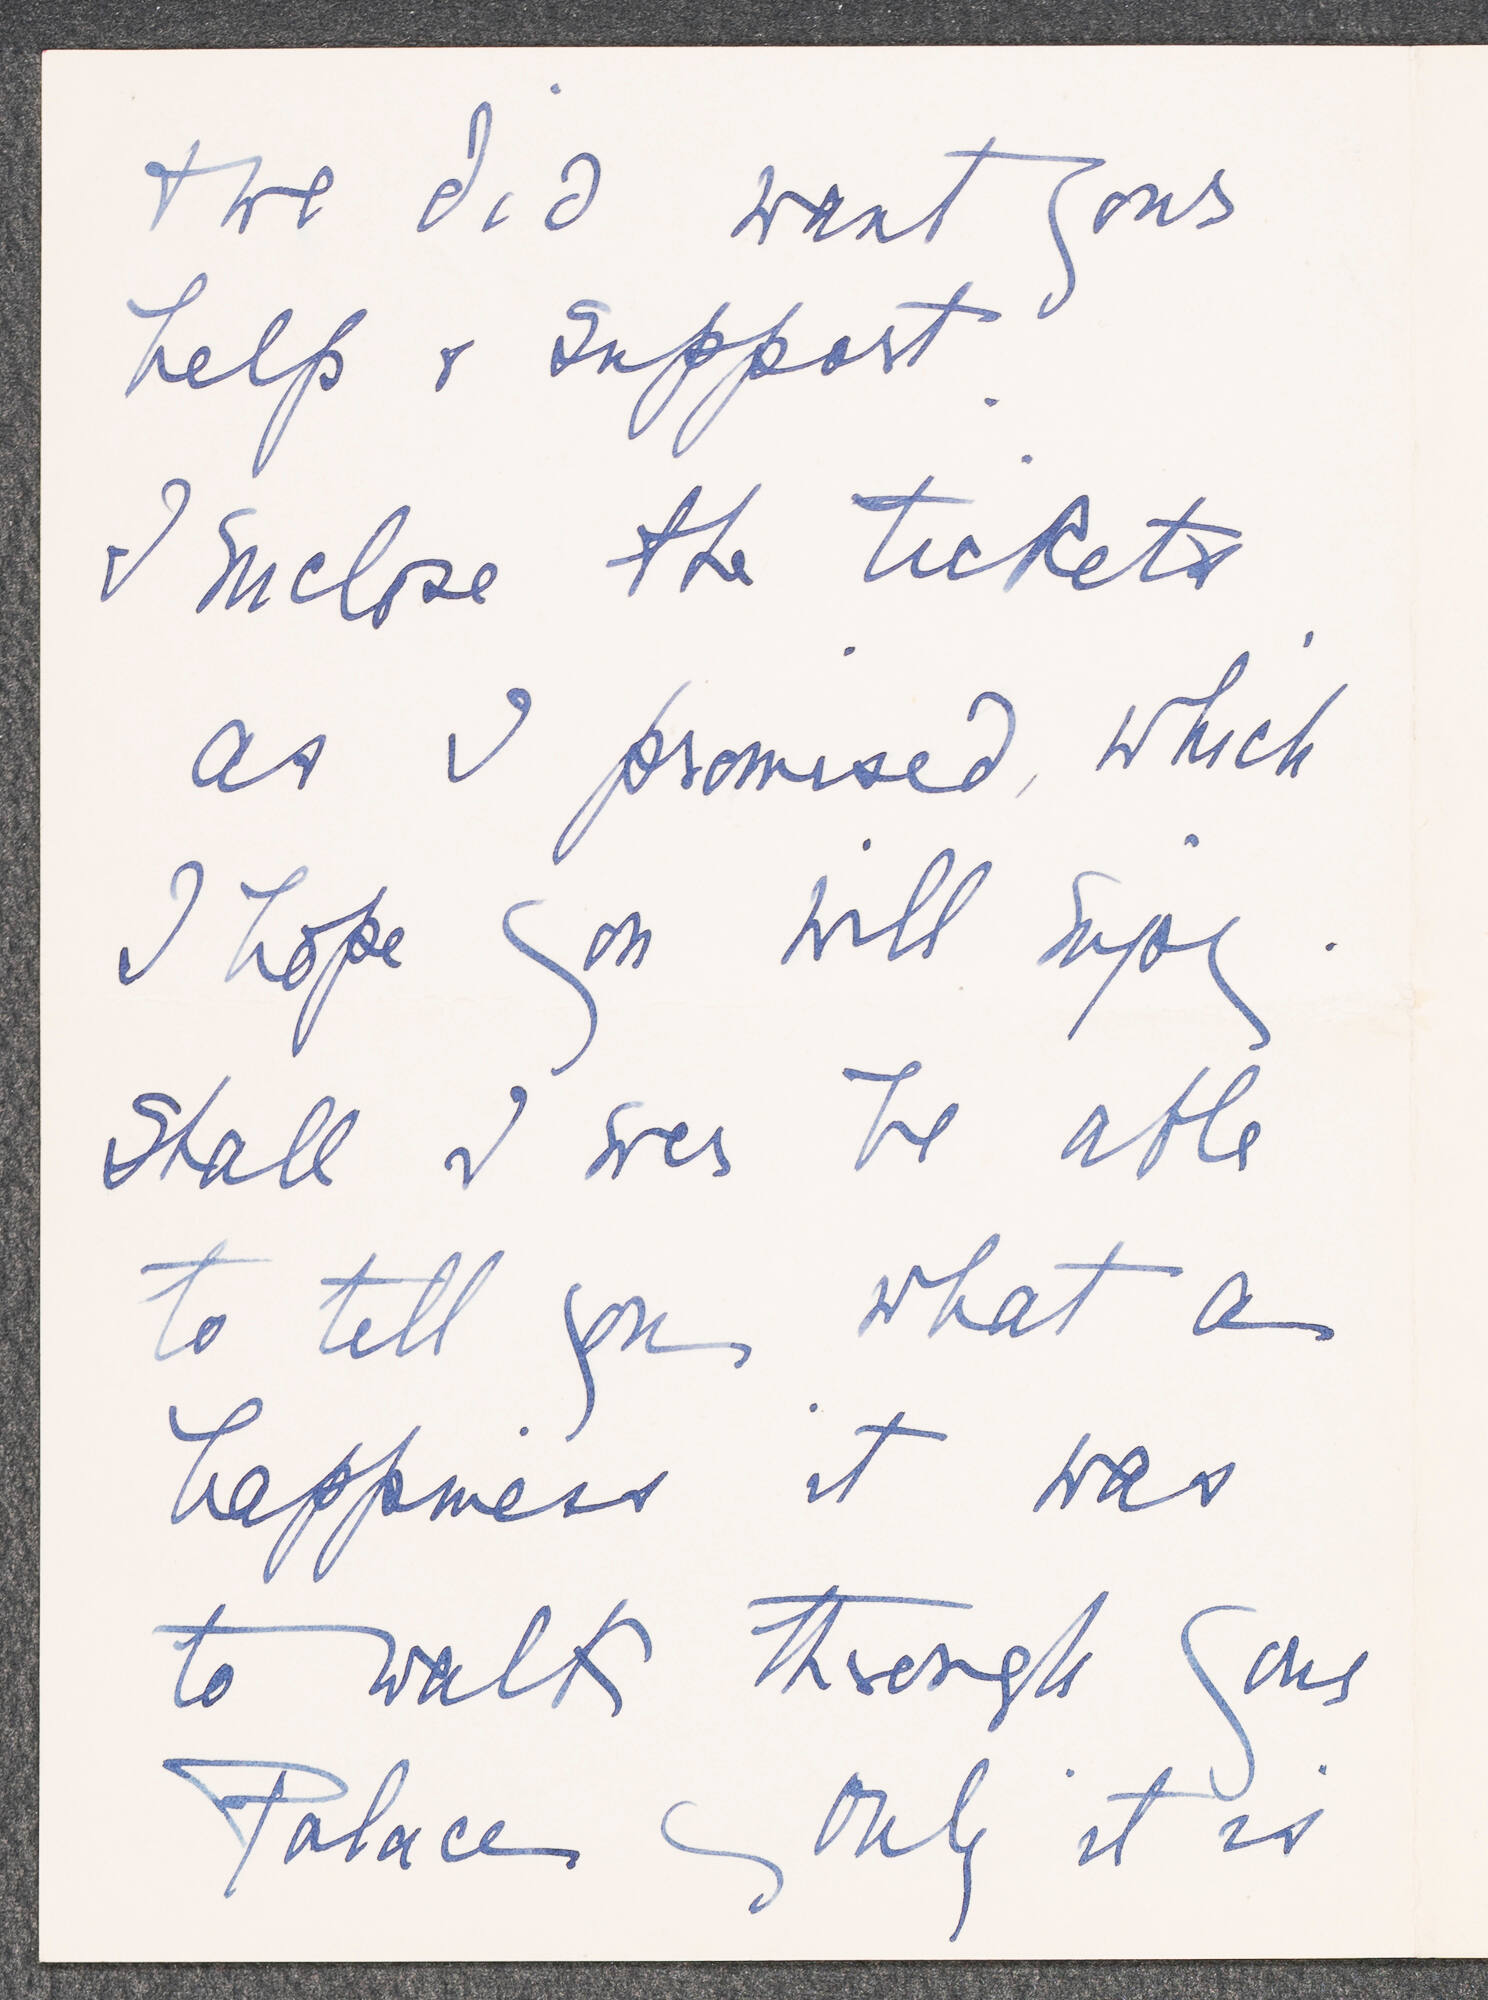 & we did want your
help & support.
I enclose the tickets
as I promised, which
I hope you will enjoy.
Shall I ever be able
to tell you what a
happiness it was
to walk through your
Palace only it is